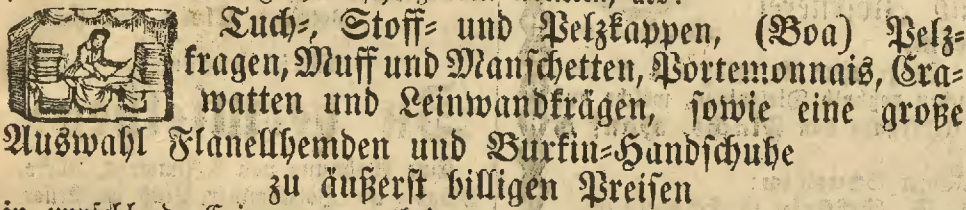 Tuch-, Stoff- und Pelzkappen, (Boa) Pelz-
kragen, Muff und Manschetten, Portemonnais, Cra-
watten und Leinwandkrägen, sowie eine große
Auswahl Flanellhemden und Burkin-Handschuhe
zu äußerst billigen Preisen